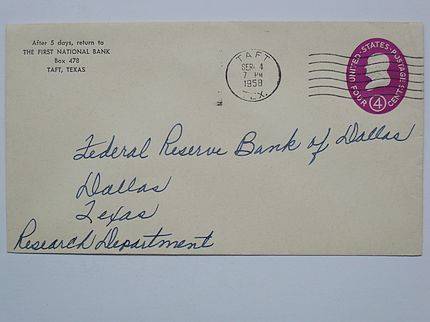 After 5 days, return to
THE FIRST NATIONAL BANK
Box 478
TAFT, TEXAS
TAFT
SEP 4
7 PM
1958
TEX.
UNITED·STATES·POSTAGE
FOUR 4 CENTS
Federal Reserve Bank of Dallas
Dallas
Texas
Research Department